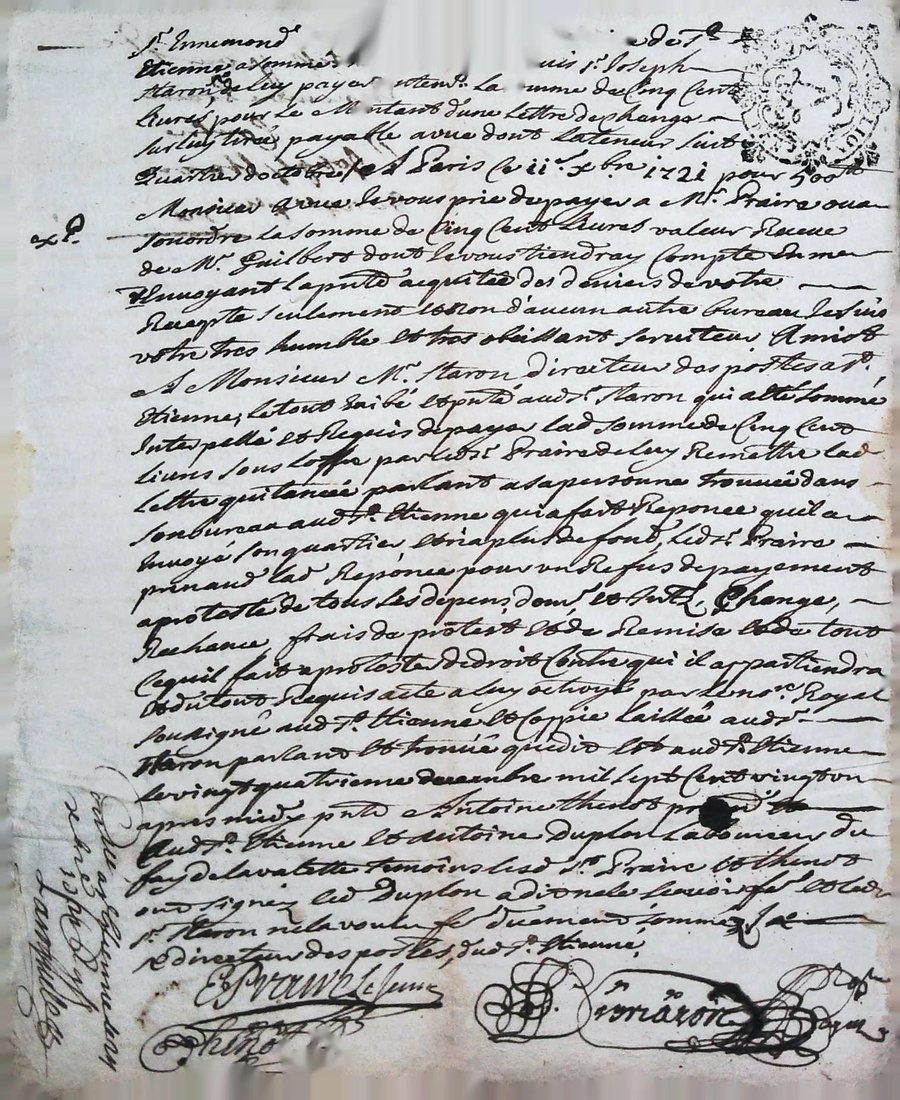 Sr. Ennemond de St
Etienne a sommé uis Sr. Joseph
Staron de luy payer la mme de Cinq Cent
Livres pour le Montant d'une lettre dechange
sur luy tirée, payable a vue dont la teneur suit
Quartier doctobre A Paris Ce 11e. xbre. 1721 pour 500tt
Monsieur a vue Je vous prie de payer a Mr. Praire ou a
son ordre la somme de Cinq Cent Livres valeur Receue
de Mr. Guilbert dont Je vous tiendray Compte En me
Renvoyant la pnte acquitée des deniers de votre
Recepte seulement et non d'aucun autre bureau Je suis
votre tres humble et tres obeissant serviteur Amiot
A Monsieur Mr. Staron directeur des postes a St.
Etienne, le tout Exibé et pnté aud Sr. Staron qui a été sommé
Interpellé et Requis de payer lad somme de Cinq Cent
livres sous loffre par led Sr. Praire de luy Remettre lad
Lettre quitancée parlant a sa personne trouvée dans
son bureau aud St. Etienne qui a fait Reponce quil a
Envoyé son quartier et n'a plus de fond, led Sr. Praire
prenant lad Reponce pour un Refus de payement
a protesté de tous les depens, dom. et Int. Change,
Rechange, frais de protest et de Remise et de tout
Ce quil fait a protester de droit Contre qui il appartiendra
et du tout Requis acte a luy octroyé par le nore. Royal
soussigné aud St. Etienne et Coppie laissée aud Sr.
Staron parlant et trouvé que dit est aud St. Etienne
le vingt quatrieme decembre mil sept Cent vingt un
apres midy pnts Antoine thenot
Aud St. Etienne et Antoine Duplon Laboureur du
fay de lavalette temoins led Sr. Praire et thenot
ont signez led Duplon a dit ne le scavoir fe. et led
Sr. Staron ne la voulu fe. duement sommé
x directeur des postes, dud St. Etienne,
E Praire Le Jeune
thenot
exp.
Controllé a St Etienne